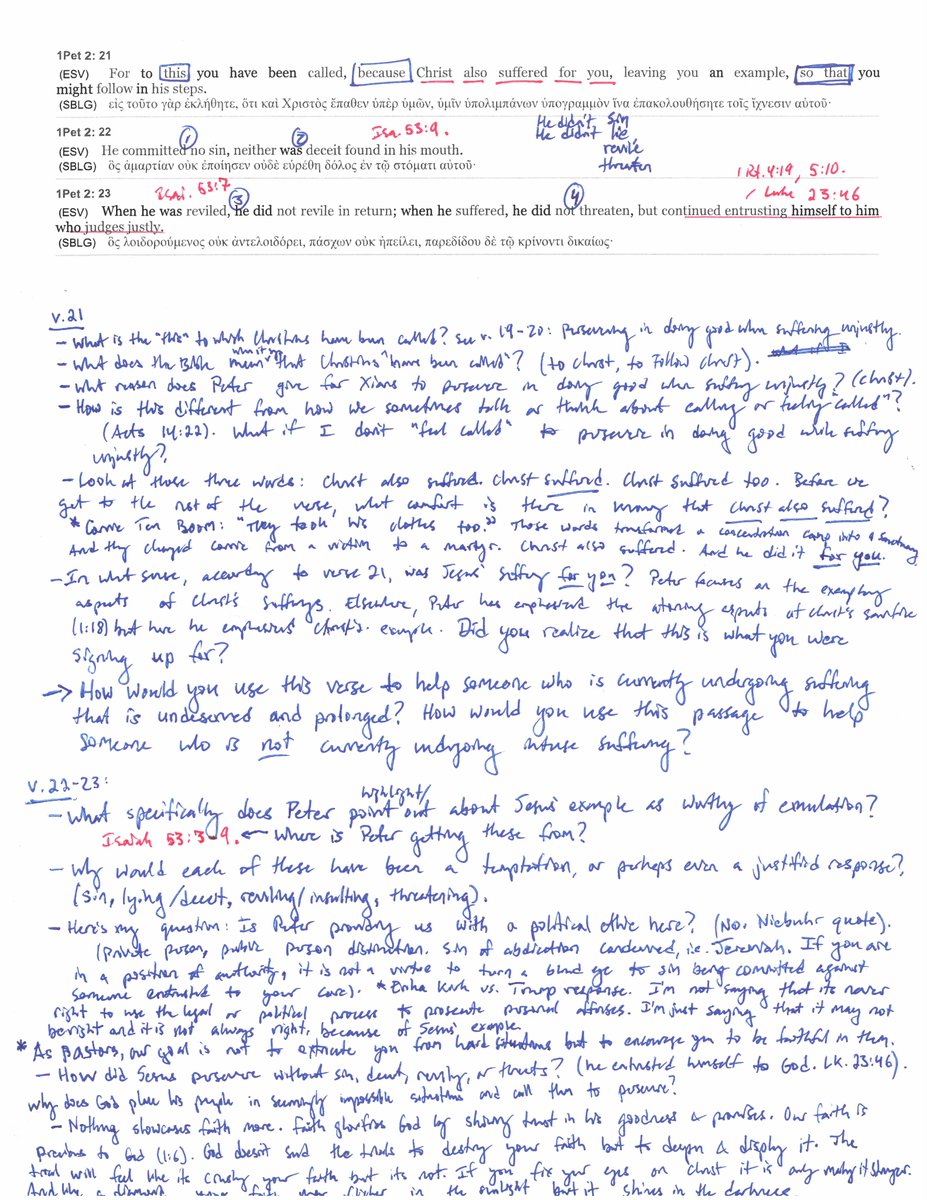 1Pet 2: 21
(ESV) For to this you have been called, because Christ also suffered for you, leaving you an example, so that you
might follow in his steps.
(SBLG) εἰς τοῦτο γὰρ ἐκλήθητε, ὅτι καὶ Χριστὸς ἔπαθεν ὑπὲρ ὑμῶν, ὑμῖν ὑπολιμπάνων ὑπογραμμὸν ἵνα ἐπακολουθήσητε τοῖς ἴχνεσιν αὐτοῦ·
He didn't sin
He didn't lie
revile
threaten
1Pet 2: 22
1 2 Isa. 53:9.
(ESV) He committed no sin, neither was deceit found in his mouth.
(SBLG) ὃς ἁμαρτίαν οὐκ ἐποίησεν οὐδὲ εὑρέθη δόλος ἐν τῷ στόματι αὐτοῦ·
1 Pt. 4:19, 5:10.
1Pet 2: 23
Isai. 53:7 3 4 / Luke 23:46
(ESV) When he was reviled, he did not revile in return; when he suffered, he did not threaten, but continued entrusting himself to him
who judges justly.
(SBLG) ὃς λοιδορούμενος οὐκ ἀντελοιδόρει, πάσχων οὐκ ἠπείλει, παρεδίδου δὲ τῷ κρίνοντι δικαίως·
v.21
- What is the "this" to which Christians have been called? See v. 19-20: Persevering in doing good when suffering unjustly.
- What does the Bible mean when it says that Christians "have been called"? (to Christ, to follow Christ).
- What reason does Peter give for Xians to persevere in doing good when suffering unjustly? (Christ).
- How is this different from how we sometimes talk or think about calling or feeling "called"?
(Acts 14:22). What if I don't "feel called" to persevere in doing good while suffering
unjustly?
- Look at those three words: Christ also suffered. Christ suffered. Christ suffered too. Before we
get to the rest of the verse, what comfort is there in knowing that Christ also suffered?
* Corrie Ten Boom: "They took his clothes too." Those words transformed a concentration camp into a sanctuary
And they changed Corrie from a victim to a martyr. Christ also suffered. And he did it for you.
- In what sense, according to verse 21, was Jesus' suffering for you? Peter focuses on the exemplary
aspects of Christ's sufferings. Elsewhere, Peter has emphasized the atoning aspects of Christ's sacrifice
(1:18) but here he emphasizes Christ's example. Did you realize that this is what you were
signing up for?
→ How would you use this verse to help someone who is currently undergoing suffering
that is undeserved and prolonged? How would you use this passage to help
someone who is not currently undergoing intense suffering?
v.22-23:
- What specifically does Peter point out highlight/ about Jesus' example as worthy of emulation?
Isaiah 53:3-9. ← Where is Peter getting these from?
- Why would each of these have been a temptation, or perhaps even a justified response?
(Sin, lying/deceit, reviling/insulting, threatening).
- Here's my question: Is Peter providing us with a political ethic here? (No. Niebuhr quote).
(Private person, public person distinction. Sin of abdication condemned, i.e. Jeremiah. If you are
in a position of authority, it is not a virtue to turn a blind eye to sin being committed against
someone entrusted to your care). * Erika Kirk vs. Trump response. I'm not saying that its never
right to use the legal or political process to prosecute personal offenses. I'm just saying that it may not
be right and it is not always right, because of Jesus' example.
* As pastors, our goal is not to extricate you from hard situations but to encourage you to be faithful in them.
- How did Jesus persevere without sin, deceit, reviling, or threats? (he entrusted himself to God. LK. 23:46).
Why does God place his people in seemingly impossible situations and call them to persevere?
- Nothing showcases faith more. Faith glorifies God by showing trust in his goodness & promises. Our faith is
precious to God (1:6). God doesn't send the trials to destroy your faith but to deepen & display it. The
trial will feel like its crushing your faith but its not. If you fix your eyes on Christ it is only making it stronger.
And like a diamond, your faith may flicker in the sunlight but it shines in the darkness.